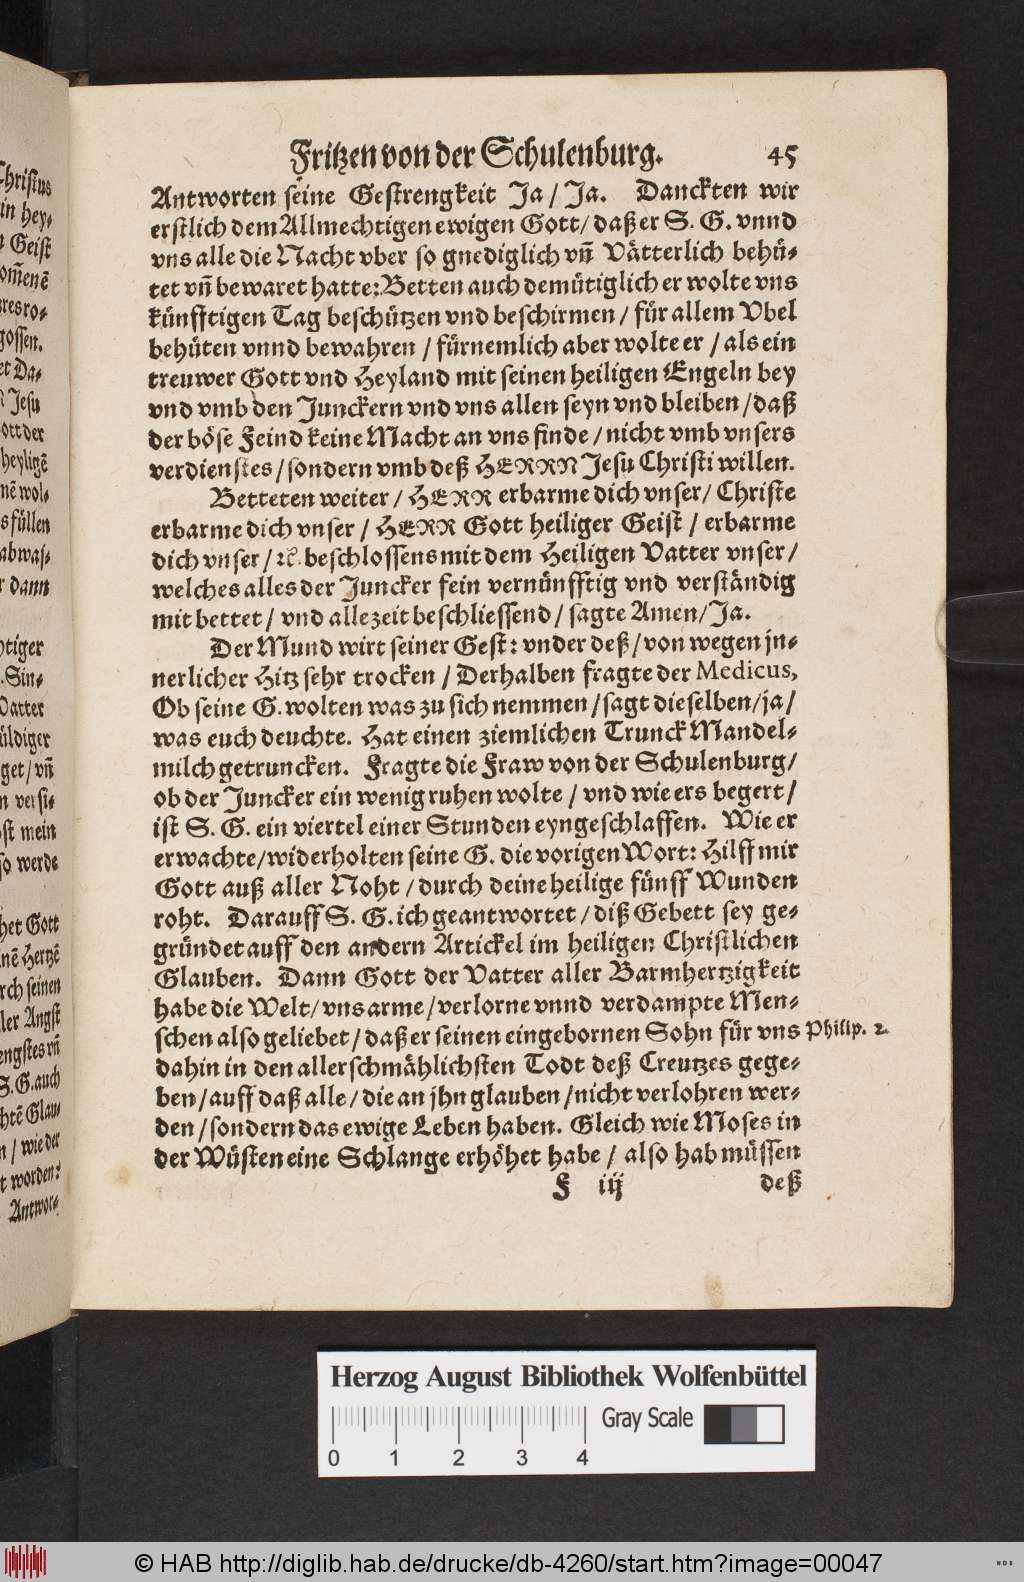 Fritzen von der Schulenburg. 45
Antworten seine Gestrengkeit Ja / Ja. Danckten wir
erstlich dem Allmechtigen ewigen Gott / daß er S. G. vnnd
vns alle die Nacht vber so gnediglich vñ Vätterlich behü-
tet vñ bewaret hatte: Betten auch demütiglich er wolte vns
künfftigen Tag beschützen vnd beschirmen / für allem Vbel
behüten vnnd bewahren / fürnemlich aber wolte er / als ein
treuwer Gott vnd Heyland mit seinen heiligen Engeln bey
vnd vmb den Junckern vnd vns allen seyn vnd bleiben / daß
der böse Feind keine Macht an vns finde / nicht vmb vnsers
verdienstes / sondern vmb deß HERRN Jesu Christi willen.
Betteten weiter / HERR erbarme dich vnser / Christe
erbarme dich vnser / HERR Gott heiliger Geist / erbarme
dich vnser / ꝛc. beschlossens mit dem Heiligen Vatter vnser /
welches alles der Juncker fein vernünfftig vnd verständig
mit bettet / vnd allezeit beschliessend / sagte Amen / Ja.
Der Mund wirt seiner Gest: vnder deß / von wegen jn-
nerlicher Hitz sehr trocken / Derhalben fragte der Medicus,
Ob seine G. wolten was zu sich nemmen / sagt dieselben / ja /
was euch deuchte. Hat einen ziemlichen Trunck Mandel-
milch getruncken. Fragte die Fraw von der Schulenburg /
ob der Juncker ein wenig ruhen wolte / vnd wie ers begert /
ist S. G. ein viertel einer Stunden eyngeschlaffen. Wie er
erwachte / widerholten seine G. die vorigen Wort: Hilff mir
Gott auß aller Noht / durch deine heilige fünff Wunden
roht. Darauff S. G. ich geantwortet / diß Gebett sey ge-
gründet auff den andern Artickel im heiligen Christlichen
Glauben. Dann Gott der Vatter aller Barmhertzigkeit
habe die Welt / vns arme / verlorne vnnd verdampte Men-
schen also geliebet / daß er seinen eingebornen Sohn für vns Philip. 2.
dahin in den allerschmählichsten Todt deß Creutzes gege-
ben / auff daß alle / die an jhn glauben / nicht verlohren wer-
den / sondern das ewige Leben haben. Gleich wie Moses in
der Wüsten eine Schlange erhöhet habe / also hab müssen
F iij deß
Christus
in hey-
Geist
omenẽ
res ro-
gossen.
et Da-
Jesu
ott der
heyligẽ
nẽ wol-
s füllen
abwas-
r dann
htiger
. Sin-
Vatter
üldiger
get / vñ
n versi-
ost mein
so werde
het Gott
nẽ Hertzẽ
rch seinen
ler Angst
engstes vñ
S. G. auch
chtẽ Glau-
n / wie der
t worden:
Antwor-
Herzog August Bibliothek Wolfenbüttel
Gray Scale
0 1 2 3 4
© HAB http://diglib.hab.de/drucke/db-4260/start.htm?image=00047
WDB